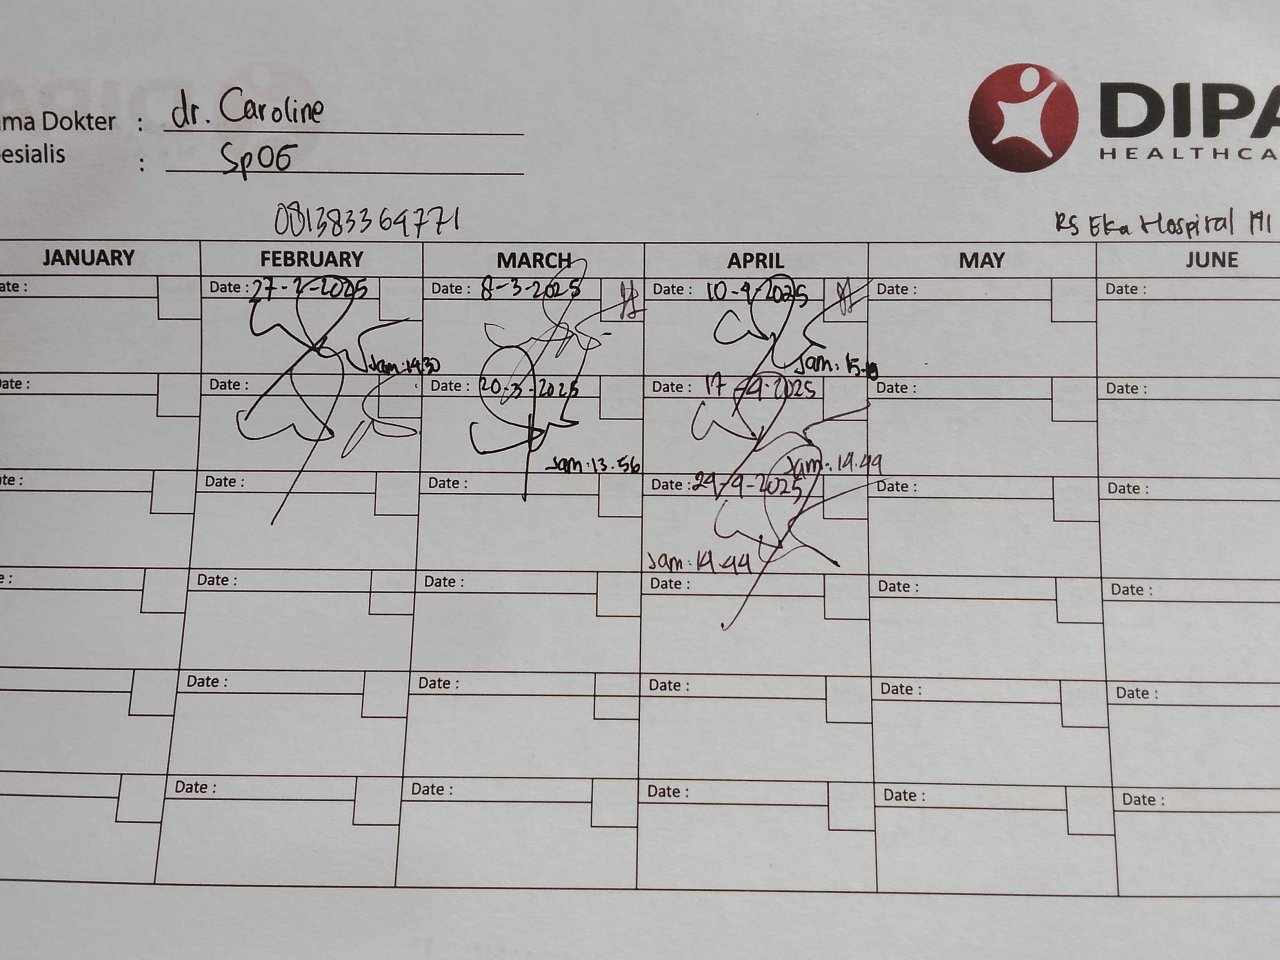 ma Dokter : dr. Caroline
esialis : SpOG
DIPA
HEALTHCA
081383364771
RS Eka Hospital
JANUARY FEBRUARY MARCH APRIL MAY JUNE
ate : Date : 27-2-2025 Date : 8-3-2025 Date : 10-4-2025 Date : Date :
Jam: 14.30 Jam: 15-10
ate : Date : Date : 20-3-2025 Date : 17-4-2025 Date : Date :
Jam: 13.56 Jam: 14.44
te : Date : Date : Date : 24-4-2025 Date : Date :
Jam: 14.44
e : Date : Date : Date : Date : Date :
Date : Date : Date : Date : Date :
Date : Date : Date : Date : Date :